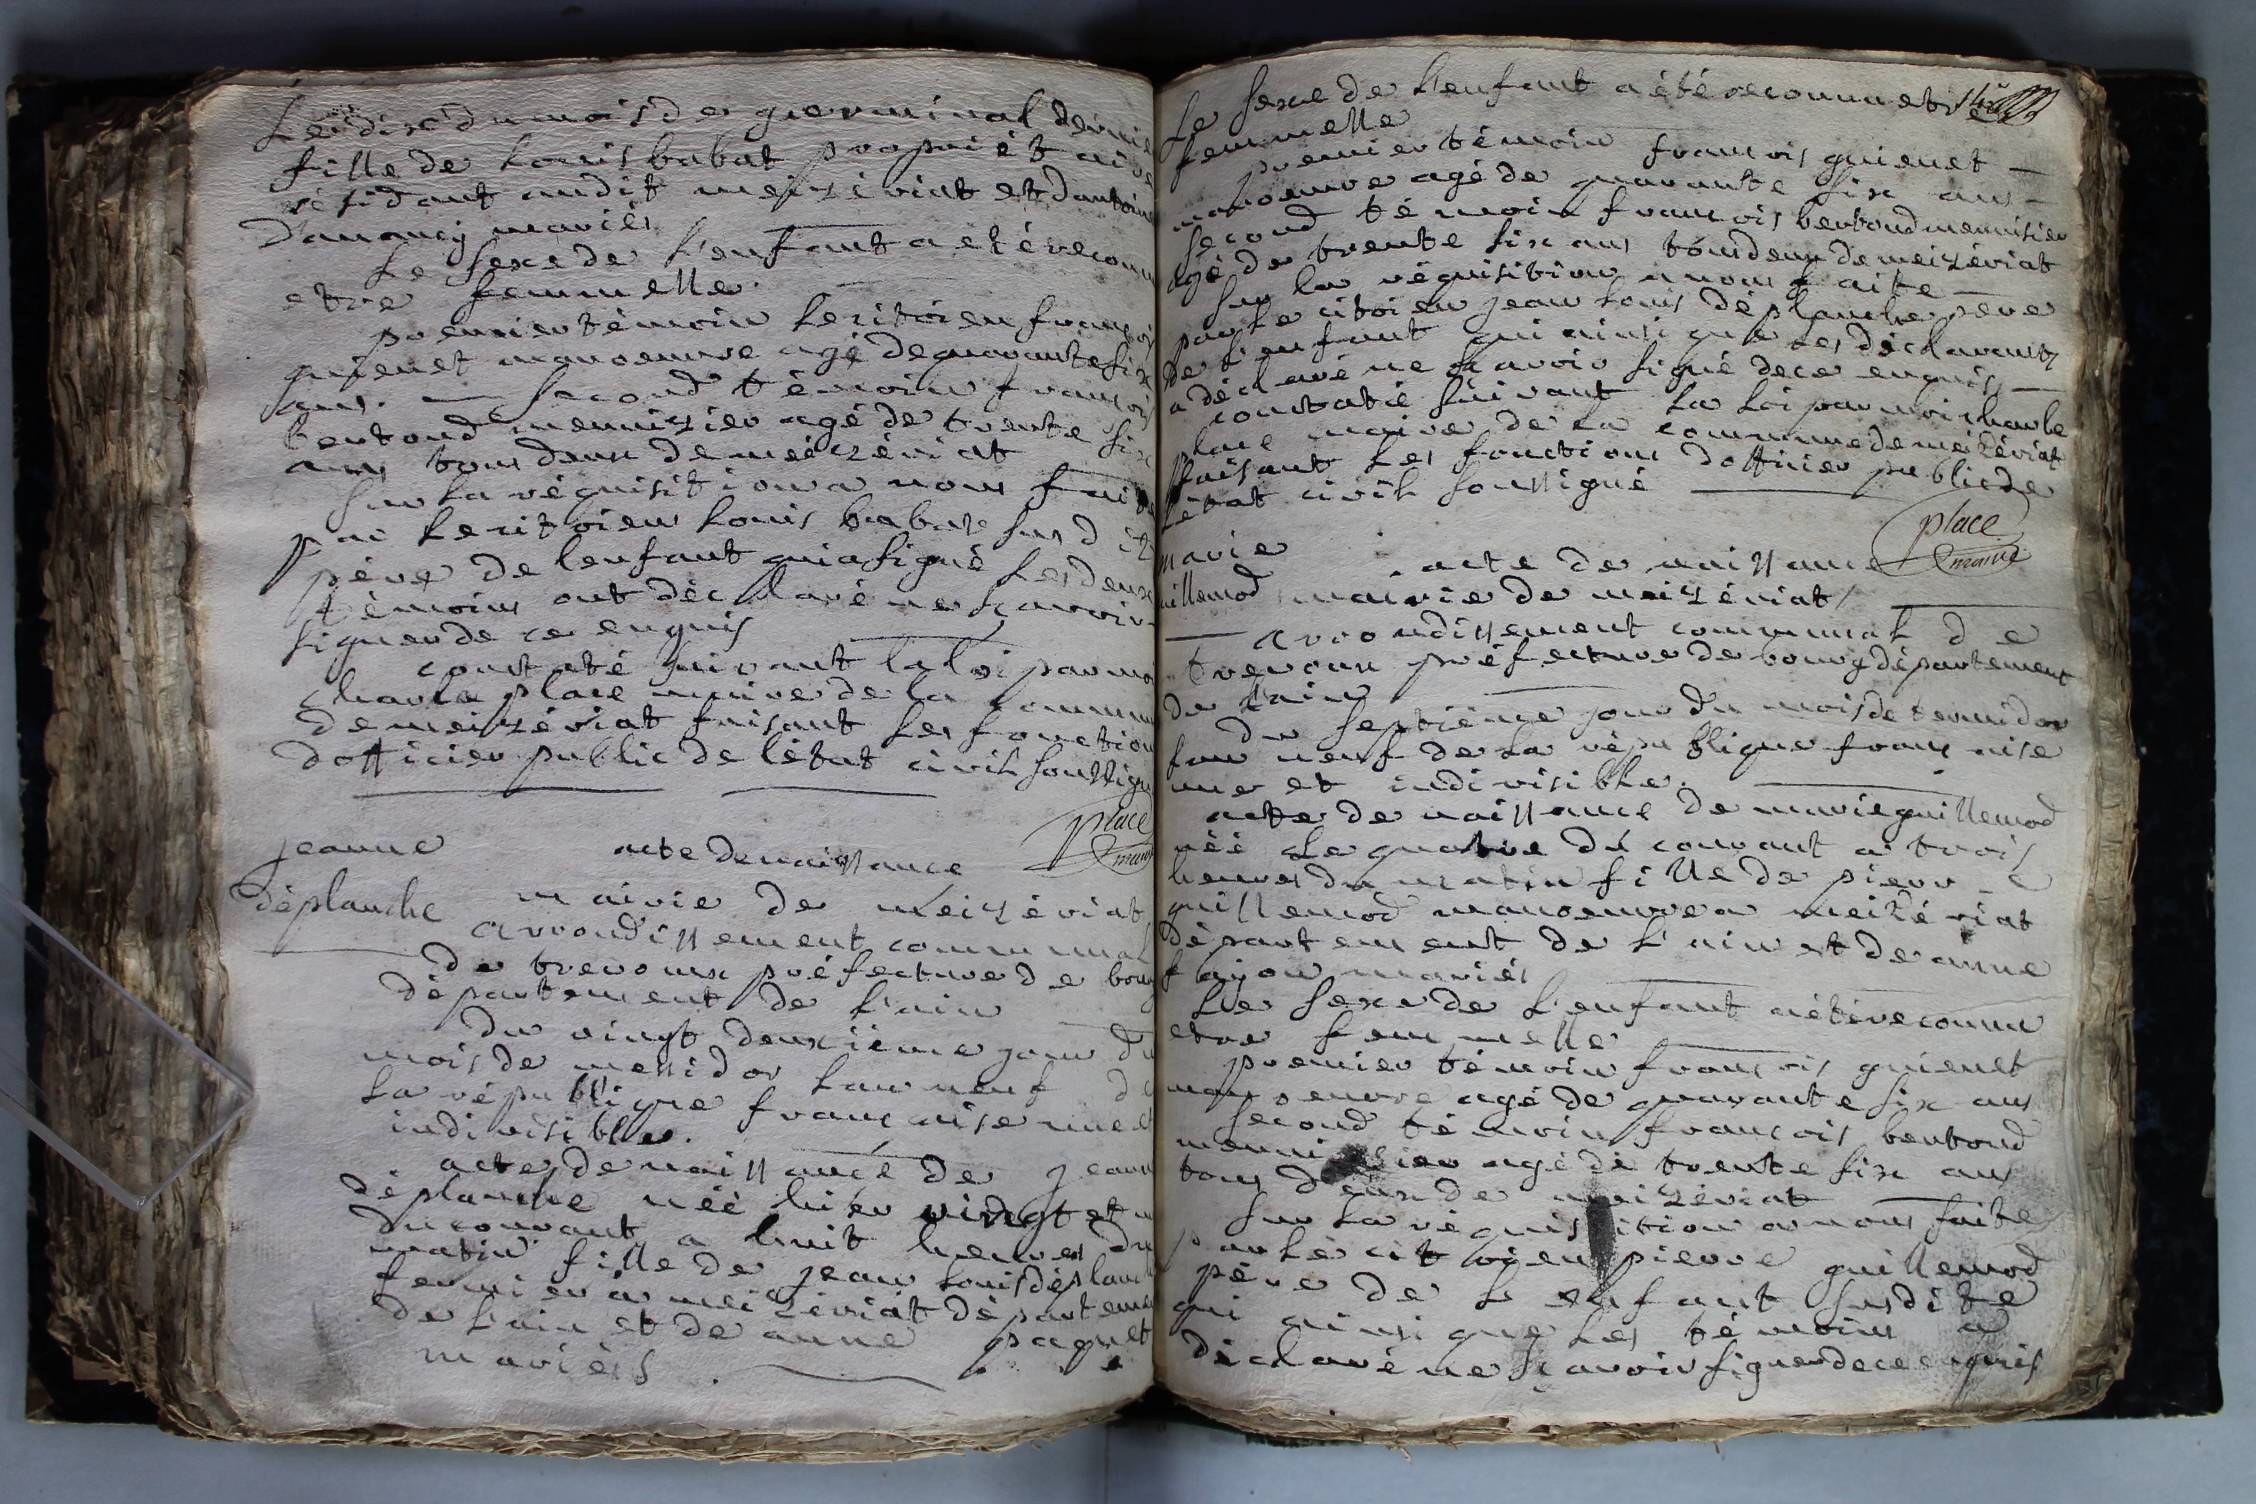 Le dix du mois de germinal dernie
fille de Louis babat propriét aire
résidant audit meizériat et dantoin
Danancy mariés
Le sexe de L'enfant a eté reconn
etre femmelle.
premier témoin Le citoien françois
guienet manoeuvre agé de quarante six
ans. second témoin françois
bertond menuizier agé de trente six
ans tous deux de meizériat
sur La réquisition a nous faite
par Le citoien Louis babat susd it
père de lenfant qui a signé Les deux
témoins ont déclaré ne sçavoir
signer de ce enquis
constaté suivant la loi par moi
charle place maire de la commune
de meizériat faisant Les fonction
dofficier public de l'état civil soussigné
place
maire
jeanne
déplanche
acte de naissance
mairie de meizériat
arrondissement communal
de trevoux préfecture de bourg
département de L'ain
du vingt deuxième jour du
mois de messidor Lan neuf de
La république française une et
indivisible.
acte de naissance de jeanne
déplanche néé hier vingt et u
du courant a huit heures du
matin fille de jean Louis déplanche
fermier a meizériat départeme
de L'ain et de anne paquet
mariés.
Le sexe de L'enfant a été reconnu etre
femmelle
premier témoin françois guienet
manoeuvre agé de quarante six ans
second témoin françois bertond menuisier
agé de trente six ans tous deux de meizériat
sur La réquisition a nous faite
par Le citoien jean Louis déplanche père
de L'enfant qui ainsi que Les déclarants
a déclaré ne sçavoir signé de ce enquis
constaté suivant La Loi par moi charle
place maire de La commune de meizériat
faisant Les fonctions dofficier public de
Létat civil soussigné
place
maire
marie
uillemod
acte de naissance
mairie de meizériat
arrondissement communal de
trevoux préfecture de bourg département
de L'ain
du septième jour du mois de termidor
Lan neuf de La république française
une et indivisible.
acte de naissance de marie guillemod
néé Le quatre du courant a trois
heures du matin fille de pierre
guillemod manoeuvre a meizériat
département de L'ain et de anne
fajon mariés
Le sexe de L'enfant a été reconnu
etre femmelle
premier témoin françois guienet
manoeuvre agé de quarante six ans
second témoin françois bertond
menuizier agé de trente six ans
tous deux de meizériat
sur La réquisition a nous faite
par Le citoien pierre guillemod
père de L'enfant susdite
qui ainsi que Les témoins a
déclaré ne sçavoir signer de ce enquis